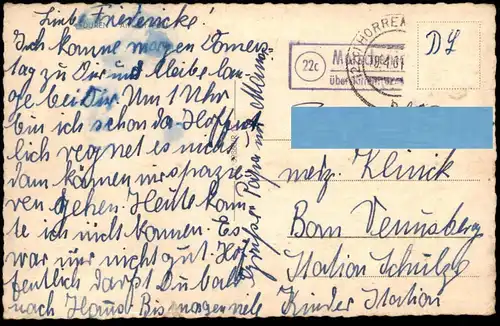 Liebe Friedericke!
Ich komme morgen Donners-
tag zu Dir und bleibe lan
ge bei Dir. Um 1 Uhr
bin ich schon da. Hoffent
lich regnet es nicht
dann können wir spazie
ren gehen. Heute konn
te ich nicht kommen. Es
war mir nicht gut. Hof
fentlich darfst Du bald
nach Hause. Bis morgen viele
Grüße Papa und Mama
22c
über
HORREM
DL
Klinick
Bonn Venusberg
Station Schulze
Kinder Station